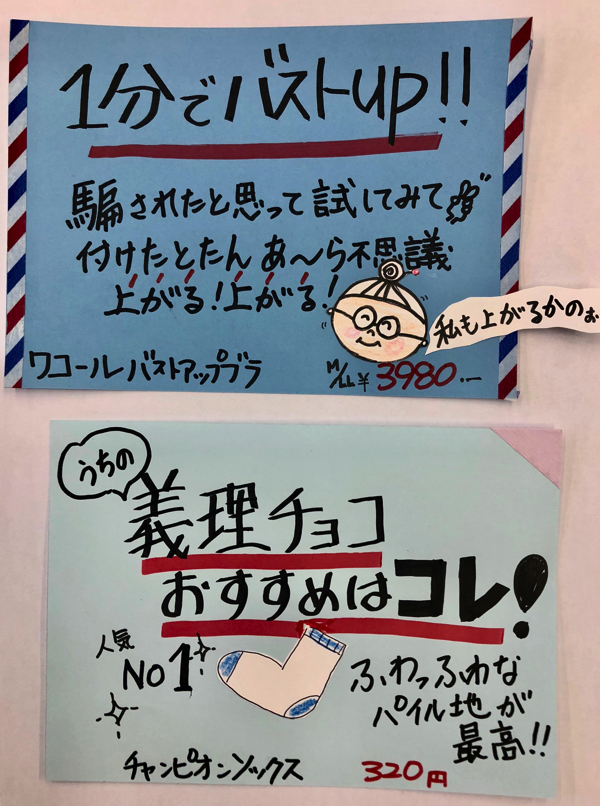 1分でバストup!!
騙されたと思って試してみて
付けたとたんあ～ら不思議
上がる!上がる!
私も上がるかのぉ
ワコールバストアップブラ
M/LL ¥3980.-
うちの
義理チョコ
おすすめはコレ!
人気
NO1
ふわっふわな
パイル地が
最高!!
チャンピオンソックス
320円